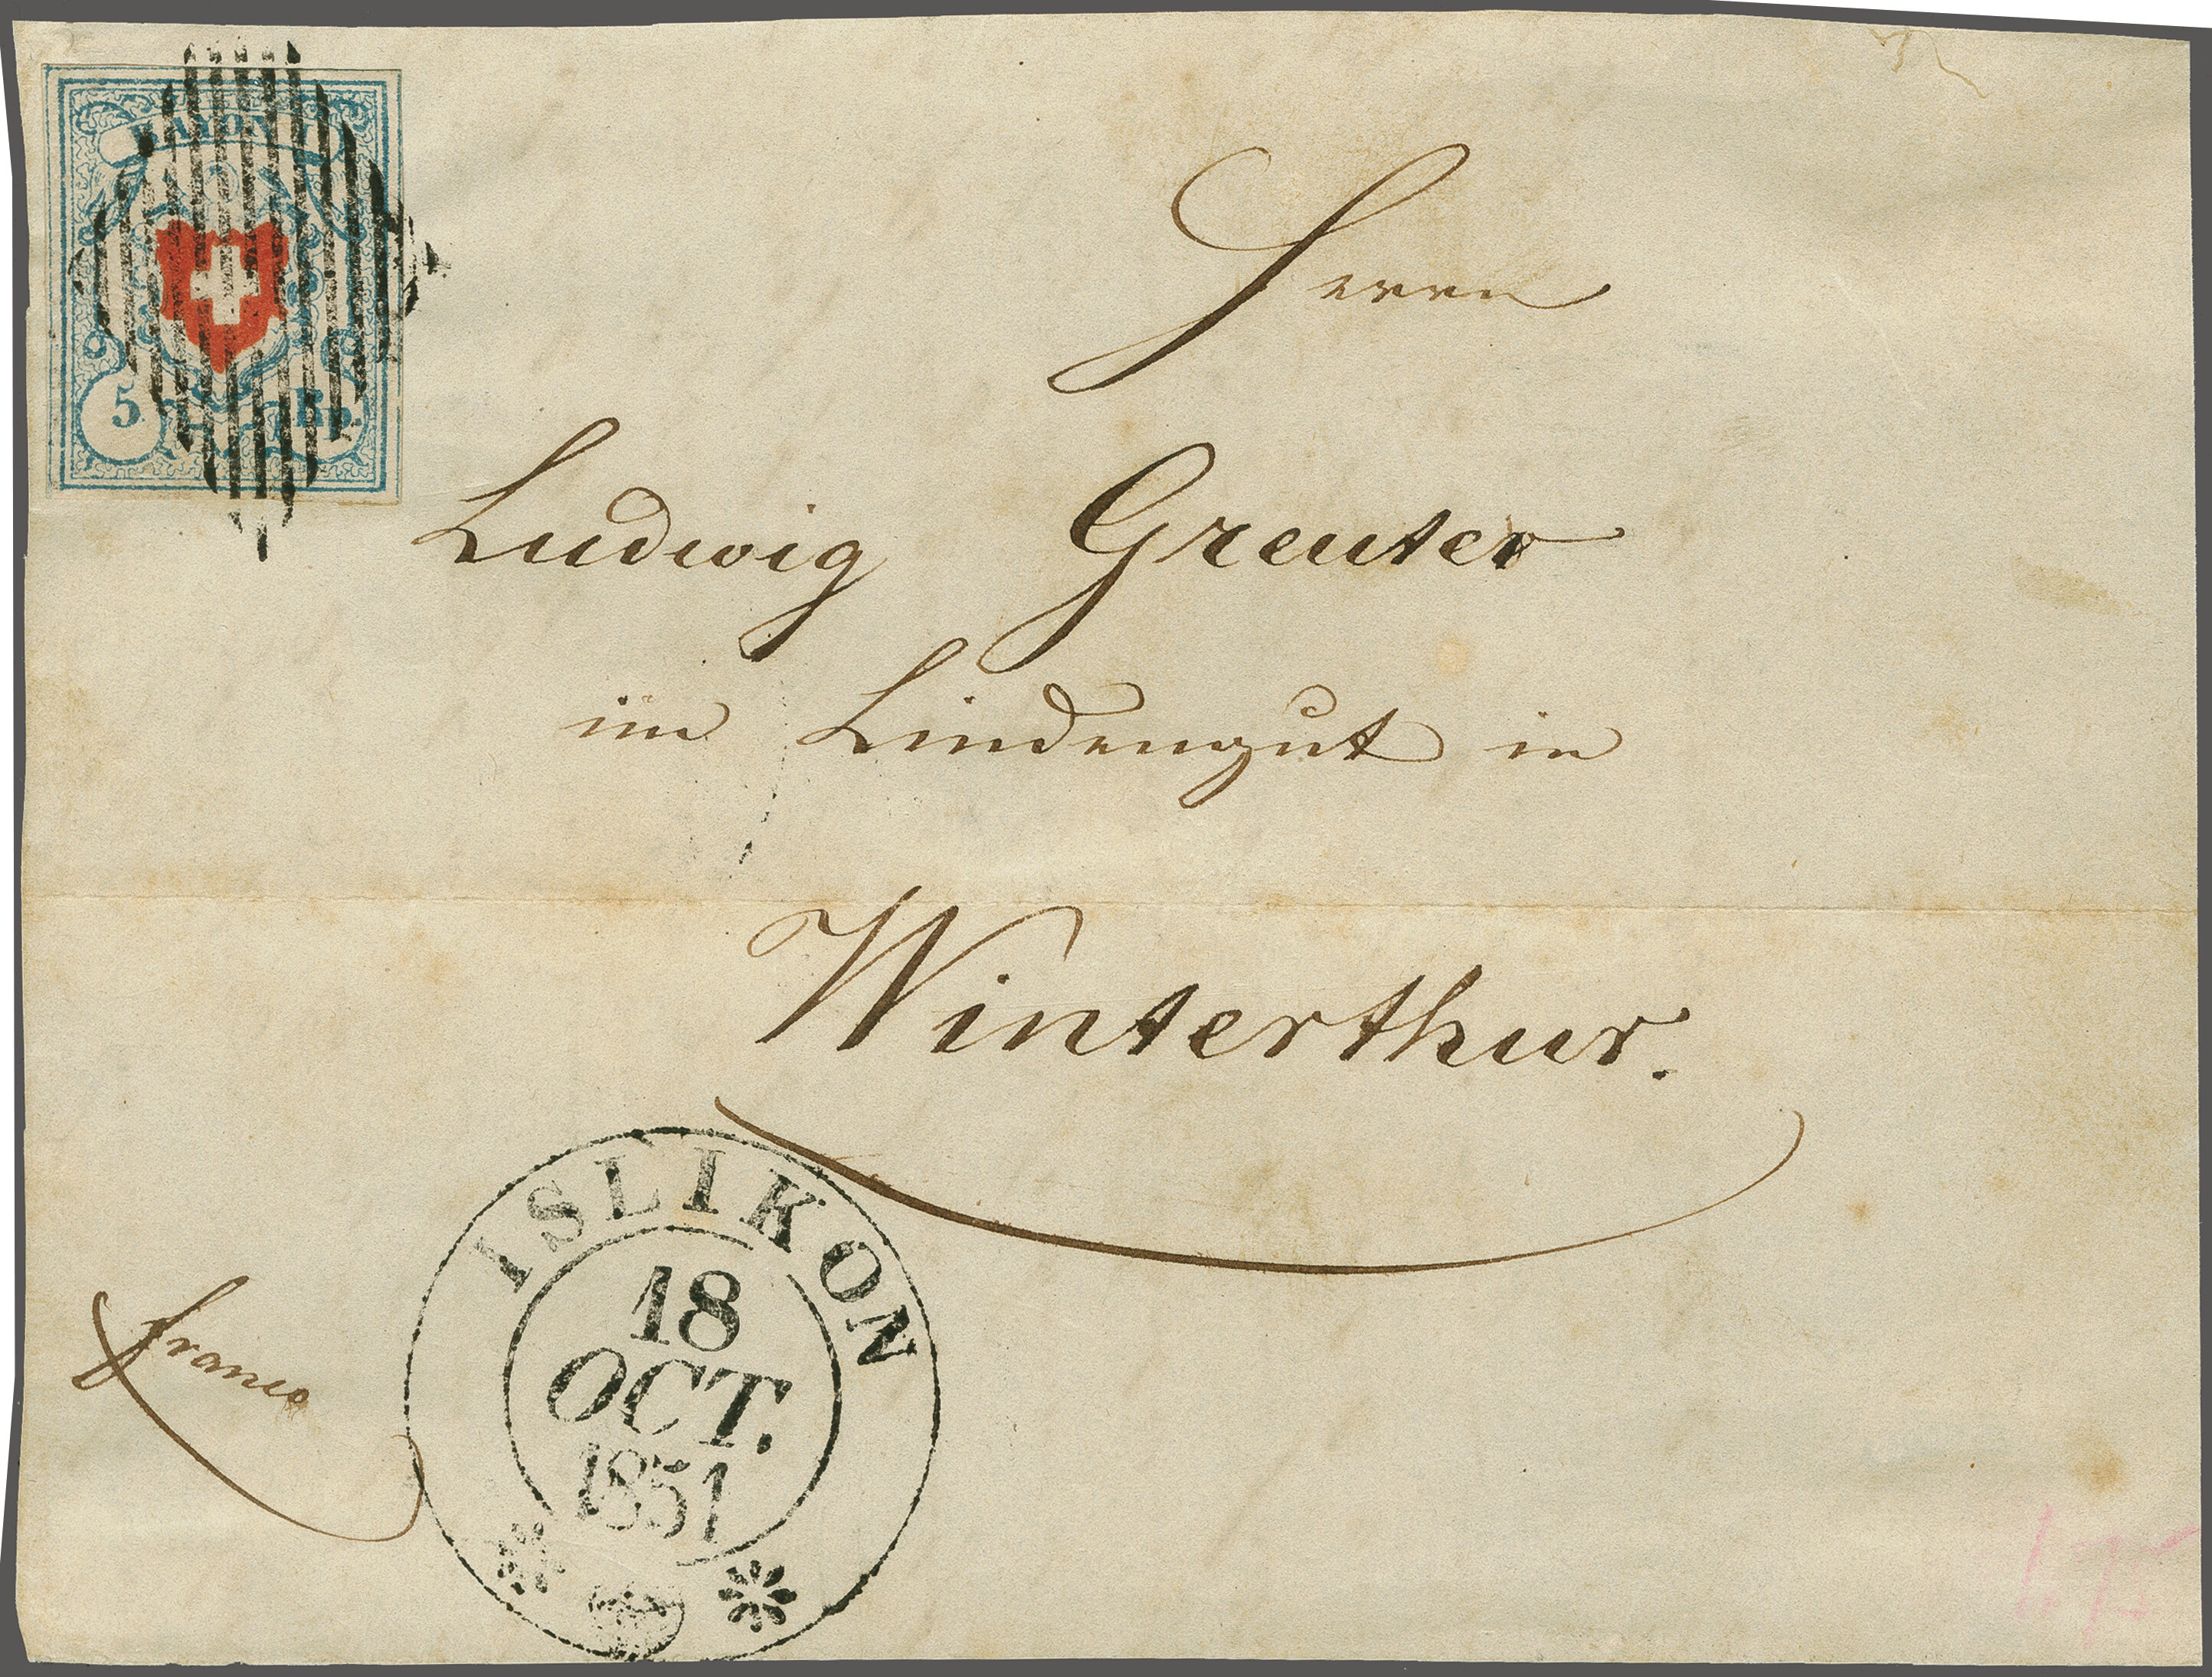 RAYON I
5 Rp.
Herrn
Ludwig Greuter
im Lindengut in
Winterthur.
ISLIKON
18
OCT.
1851
franco